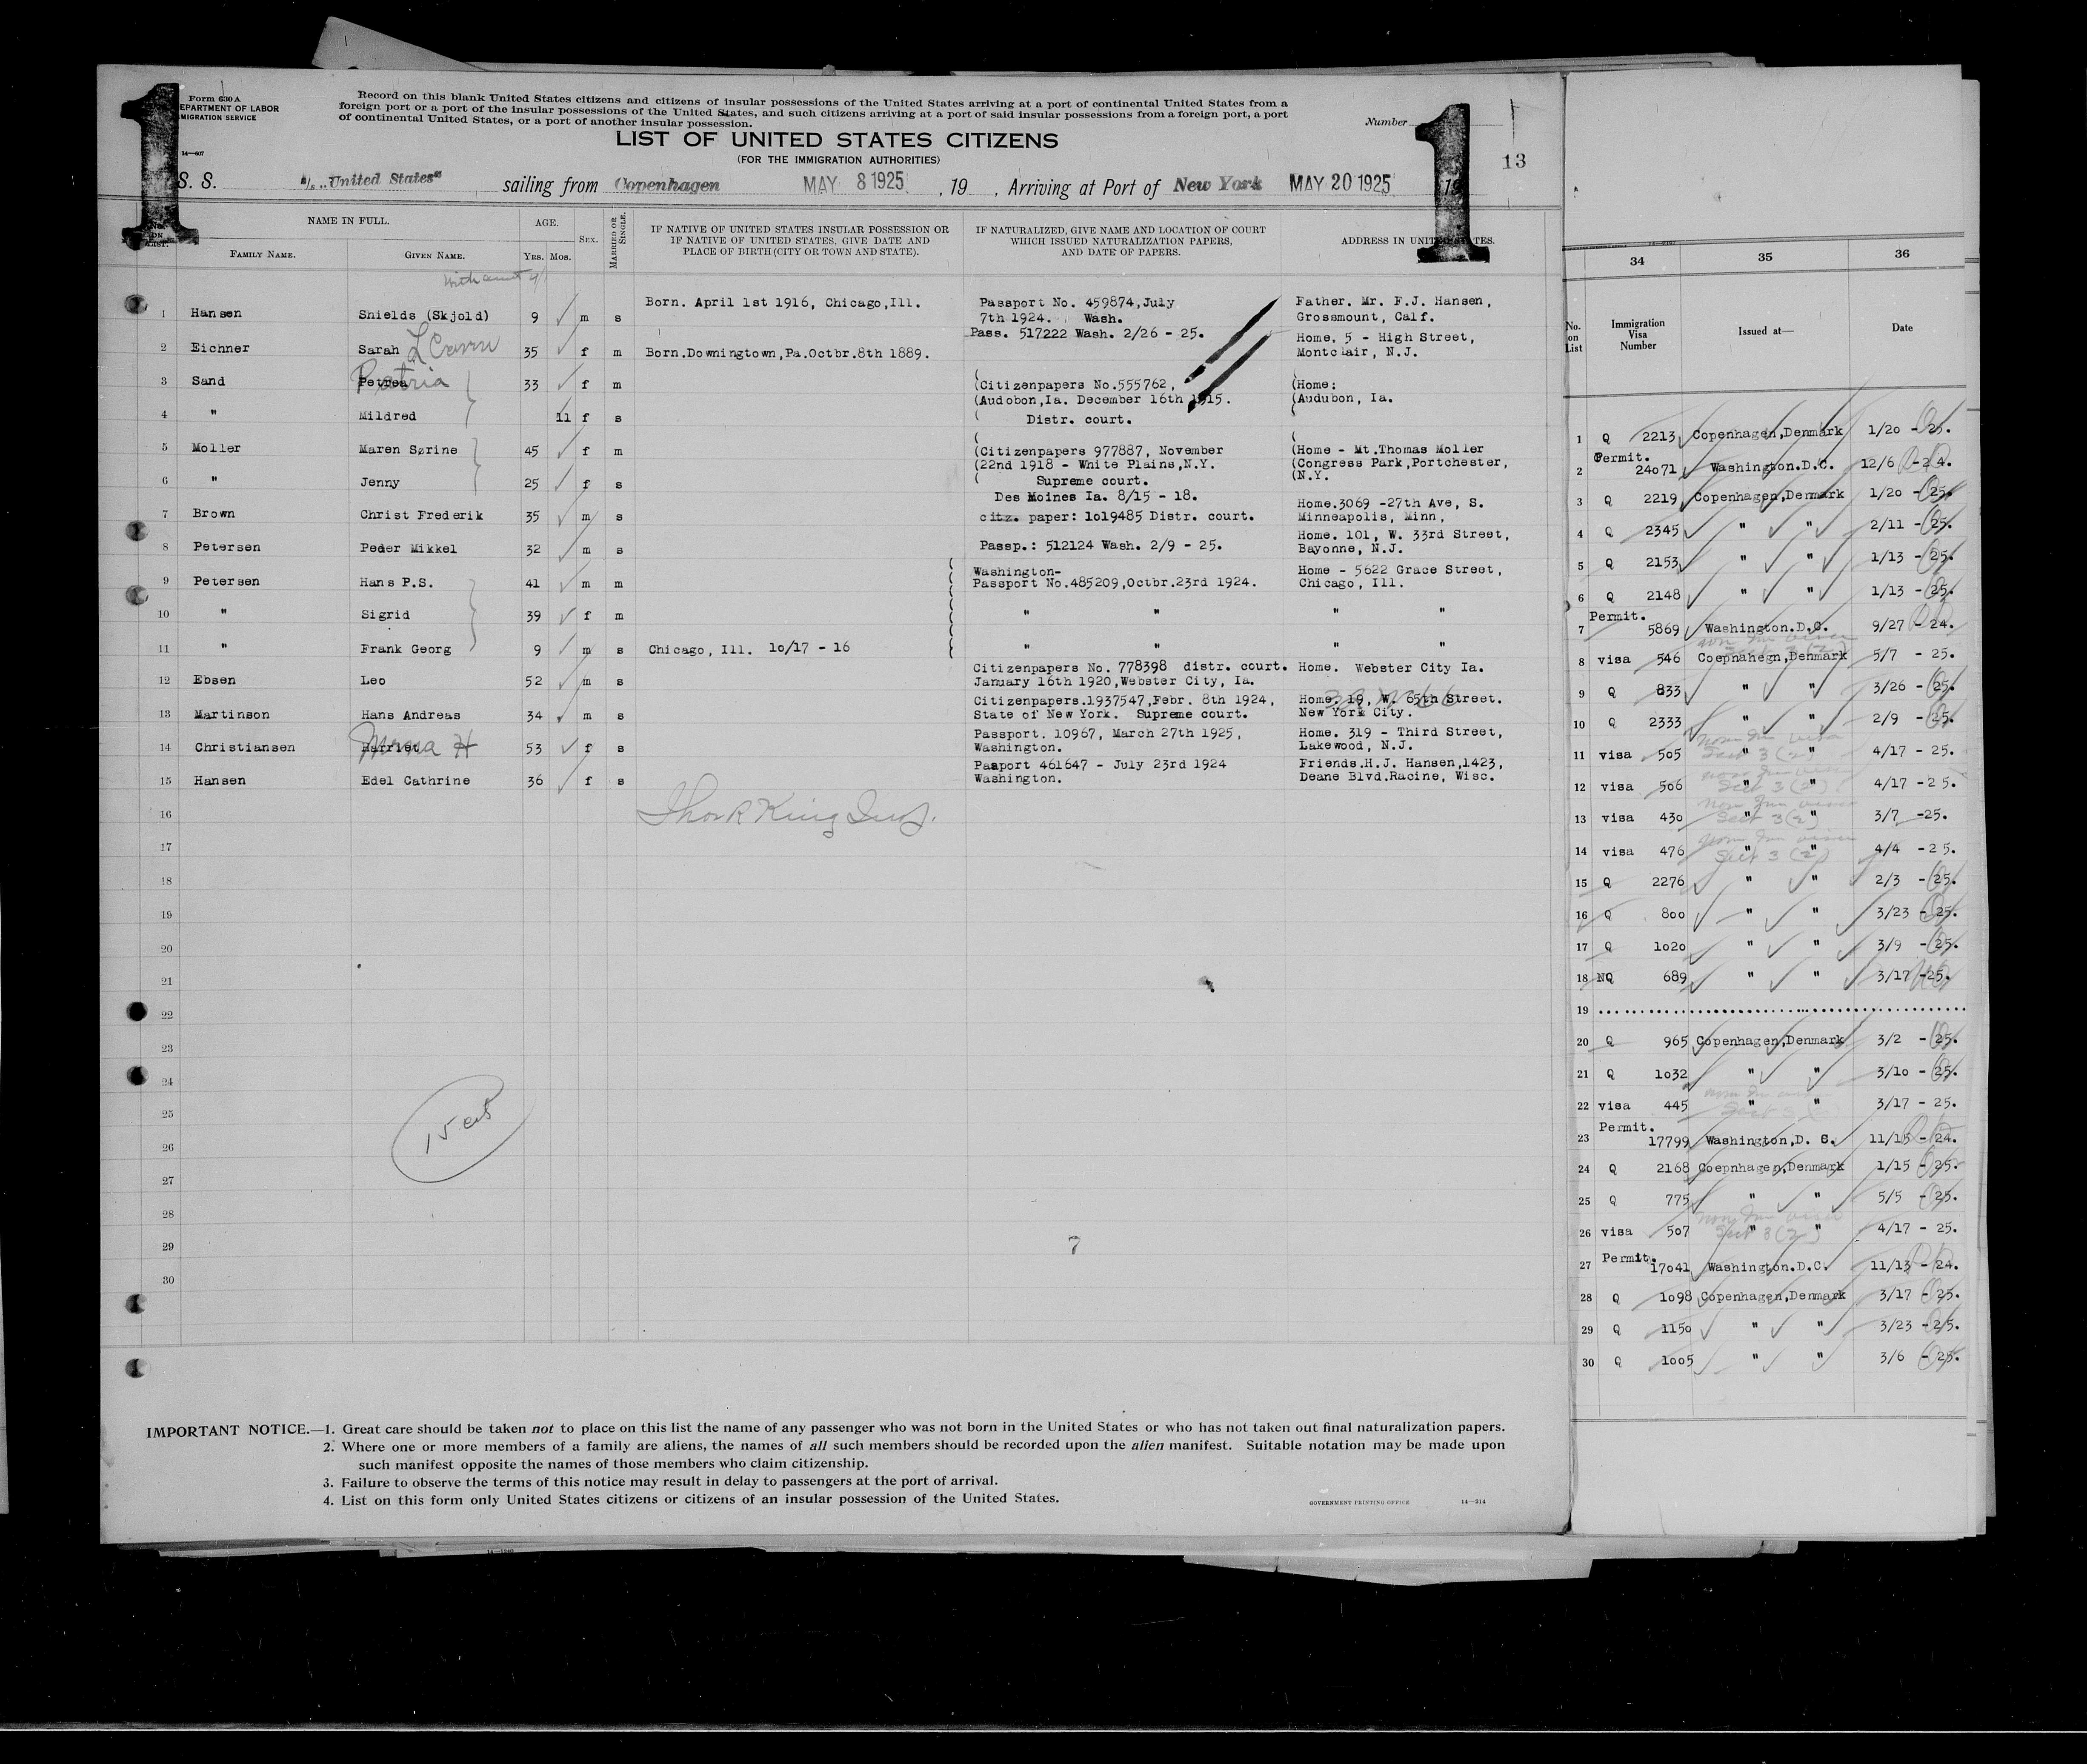 1
1
Form 630 A
DEPARTMENT OF LABOR
IMMIGRATION SERVICE
14—607
Record on this blank United States citizens and citizens of insular possessions of the United States arriving at a port of continental United States from a
foreign port or a port of the insular possessions of the United States, and such citizens arriving at a port of said insular possessions from a foreign port, a port
of continental United States, or a port of another insular possession.
Number
13
LIST OF UNITED STATES CITIZENS
(FOR THE IMMIGRATION AUTHORITIES)
S. S. s/s „United States" sailing from Copenhagen MAY 8 1925 , 19 , Arriving at Port of New York MAY 20 1925 19
NAME IN FULL. AGE. SEX. MARRIED OR SINGLE.
FAMILY NAME. GIVEN NAME. YRS. MOS.
IF NATIVE OF UNITED STATES INSULAR POSSESSION OR
IF NATIVE OF UNITED STATES, GIVE DATE AND
PLACE OF BIRTH (CITY OR TOWN AND STATE).
IF NATURALIZED, GIVE NAME AND LOCATION OF COURT
WHICH ISSUED NATURALIZATION PAPERS,
AND DATE OF PAPERS.
ADDRESS IN UNITED STATES.
with aunt
Born. April 1st 1916, Chicago,Ill. Passport No. 459874,July Father. Mr. F.J. Hansen,
1 Hansen Shields (Skjold) 9 m s 7th 1924. Wash. Grossmount, Calf.
Pass. 517222 Wash. 2/26 - 25. Home. 5 - High Street,
2 Eichner Sarah 35 f m Born.Downingtown,Pa.Octbr.8th 1889. Montclair, N.J.
3 Sand Petrea Patria 33 f m (Citizenpapers No.555762, (Home:
(Audobon,Ia. December 16th 1915. (Audubon, Ia.
4 " Mildred 11 f s ( Distr. court.
5 Moller Maren Sørine 45 f m (Citizenpapers 977887, November (Home - Mt.Thomas Moller
(22nd 1918 - White Plains,N.Y. (Congress Park,Portchester,
6 " Jenny 25 f s ( Supreme court. (N.Y.
Des Moines Ia. 8/15 - 18. Home.3069 -27th Ave, S.
7 Brown Christ Frederik 35 m s citz. paper: 1o19485 Distr. court. Minneapolis, Minn,
8 Petersen Peder Mikkel 32 m s Passp.: 512124 Wash. 2/9 - 25. Home. 101, W. 33rd Street,
Bayonne, N.J.
Washington- Home - 5622 Grace Street,
9 Petersen Hans P.S. 41 m m Passport No.485209,Octbr.23rd 1924. Chicago, Ill.
10 " Sigrid 39 f m " " " "
11 " Frank Georg 9 m s Chicago, Ill. 1o/17 - 16 " " " "
Citizenpapers No. 778398 distr. court. Home. Webster City Ia.
12 Ebsen Leo 52 m s January 16th 1920,Webster City, Ia.
Citizenpapers.1937547,Febr. 8th 1924, Home. 19, W. 65th Street.
13 Martinson Hans Andreas 34 m s State of New York. Supreme court. New York City.
Passport. 10967, March 27th 1925, Home. 319 - Third Street,
14 Christiansen Harriet 53 f s Washington. Lakewood, N.J.
Paaport 461647 - July 23rd 1924 Friends.H.J. Hansen,1423,
15 Hansen Edel Cathrine 36 f s Washington. Deane Blvd.Racine, Wisc.
16
17
18
19
20
21
22
23
24
25
15
26
27
28
29 7
30
IMPORTANT NOTICE.—1. Great care should be taken not to place on this list the name of any passenger who was not born in the United States or who has not taken out final naturalization papers.
2. Where one or more members of a family are aliens, the names of all such members should be recorded upon the alien manifest. Suitable notation may be made upon
such manifest opposite the names of those members who claim citizenship.
3. Failure to observe the terms of this notice may result in delay to passengers at the port of arrival.
4. List on this form only United States citizens or citizens of an insular possession of the United States.
GOVERNMENT PRINTING OFFICE 14—314
34 35 36
No. on List Immigration Visa Number Issued at— Date
1 Q 2213 Copenhagen,Denmark 1/20 - 25.
Permit.
2 24o71 Washington.D.C. 12/6 -24.
3 Q 2219 Copenhagen,Denmark 1/20 - 25.
4 Q 2345 " " 2/11 - 25.
5 Q 2153 " " 1/13 - 25.
6 Q 2148 " " 1/13 - 25.
Permit.
7 5869 Washington.D.C. 9/27 - 24.
8 visa 546 Coepnahegn,Denmark 5/7 - 25.
9 Q 833 " " 3/26 - 25.
10 Q 2333 " " 2/9 - 25.
11 visa 5o5 " " 4/17 - 25.
Sect 3 (2)
12 visa 5o6 " " 4/17 -25.
Sect 3 (2)
13 visa 43o " " 3/7 -25.
Sect 3 (2)
14 visa 476 " " 4/4 -25.
Sect 3 (2)
15 Q 2276 " " 2/3 - 25.
16 Q 8oo " " 3/23 - 25.
17 Q 1o2o " " 3/9 - 25.
18 NQ 689 " " 3/17 -25.
19
20 Q 965 Copenhagen,Denmark 3/2 - 25.
21 Q 1o32 " " 3/1o - 25.
22 visa 445 " " 3/17 - 25.
Permit.
23 17799 Washington,D. S. 11/15 - 24.
24 Q 2168 Coepnhagen,Denmark 1/15 - 25.
25 Q 775 " " 5/5 - 25.
26 visa 5o7 " " 4/17 - 25.
Sect 3 (2)
Permit.
27 17o41 Washington.D.C. 11/13 - 24.
28 Q 1o98 Copenhagen,Denmark 3/17 - 25.
29 Q 115o " " 3/23 -25.
30 Q 1oo5 " " 3/6 - 25.